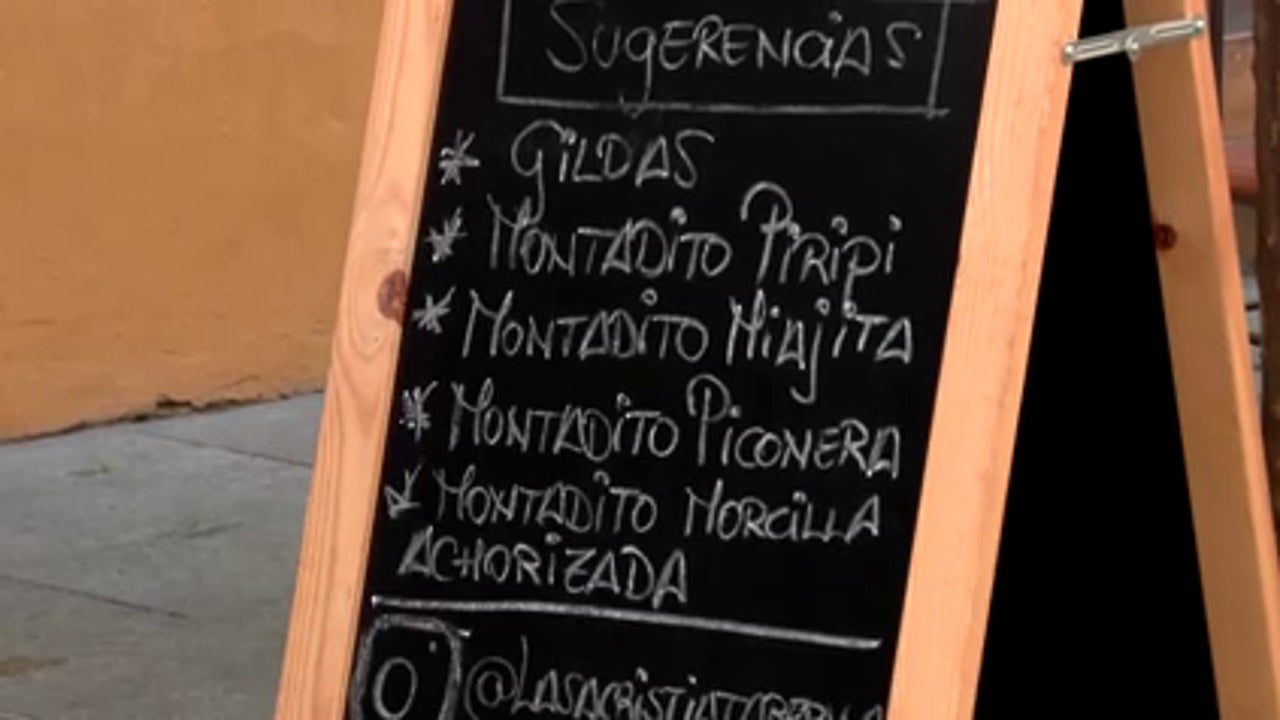 SUgERENCiAS
* GiLDAS
* MONTADiTO PiRipi
* MONTADiTO MiAjiTA
* MONTADiTO PiCONERA
* MONTADiTO MORCiLLA
ACHORiZADA